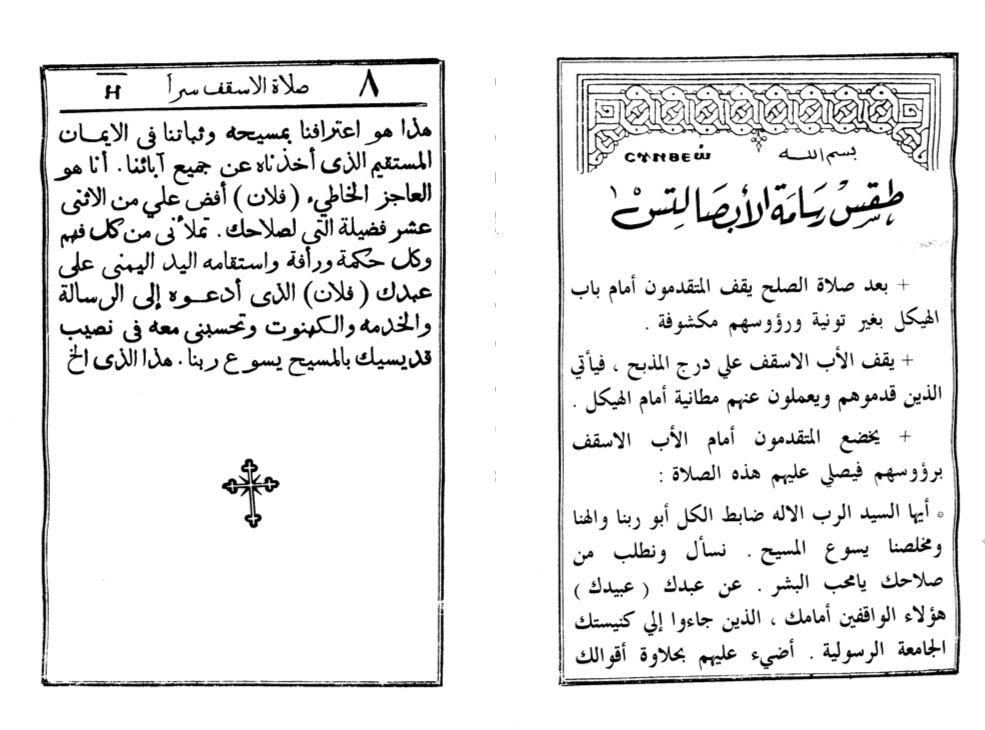 بسم الله ⲤⲨⲚⲐⲈⲰ̅
طقس رسامة الأبصالتس
+ بعد صلاة الصلح يقف المتقدمون أمام باب
الهيكل بغير تونية ورؤوسهم مكشوفة .
+ يقف الأب الاسقف علي درج المذبح ، فيأتي
الذين قدموهم ويعملون عنهم مطانية أمام الهيكل .
+ يخضع المتقدمون أمام الأب الاسقف
برؤوسهم فيصلي عليهم هذه الصلاة :
* أيها السيد الرب الاله ضابط الكل أبو ربنا والهنا
ومخلصنا يسوع المسيح . نسأل ونطلب من
صلاحك يامحب البشر . عن عبدك ( عبيدك )
هؤلاء الواقفين أمامك ، الذين جاءوا إلي كنيستك
الجامعة الرسولية . أضيء عليهم بحلاوة أقوالك
٨ صلاة الاسقف سرأ Ⲏ̅
هذا هو اعترافنا بمسيحه وثباتنا فى الايمان
المستقيم الذى أخذناه عن جميع آبائنا. أنا هو
العاجز الخاطيء ( فلان ) أفض علي من الاثنى
عشر فضيلة التي لصلاحك . تملأنى من كل فهم
وكل حكمة ورأفة واستقامه اليد اليمنى على
عبدك ( فلان ) الذى أدعوه إلى الرسالة
والخدمه والكهنوت وتحسبنى معه فى نصيب
قديسيك بالمسيح يسوع ربنا . هذا الذى الخ